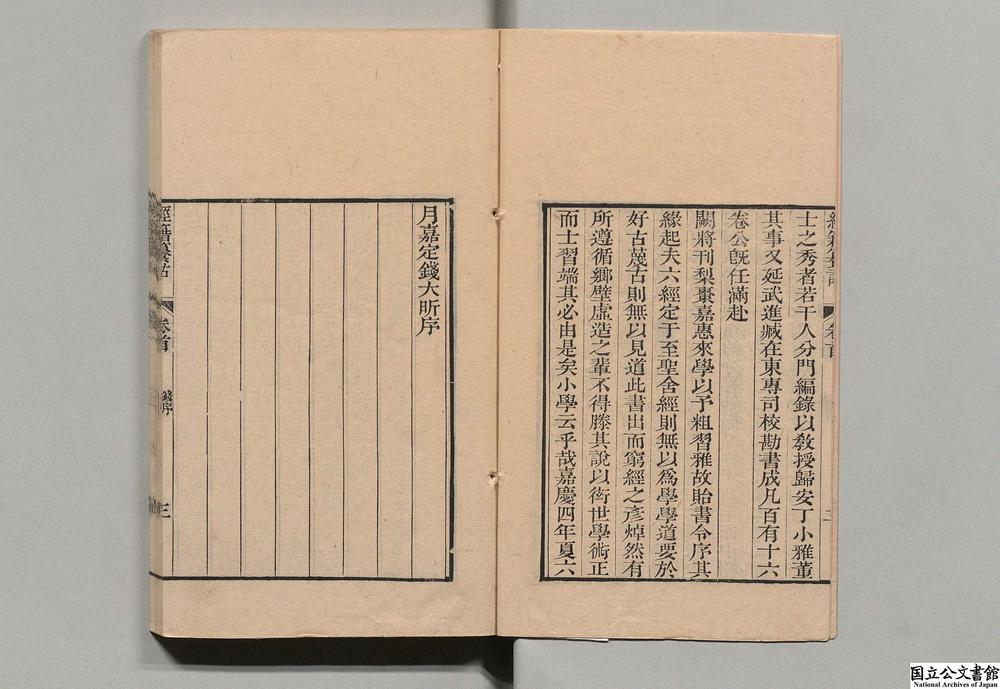 士之秀者若干人分門編錄以敎授歸安丁小雅董
其事又延武進臧在東專司校勘書成凡百有十六
卷公旣任滿赴
闕將刊梨棗嘉惠來學以予粗習雅故貽書令序其
緣起夫六經定于至聖舍經則無以爲學學道要於
好古蔑古則無以見道此書出而窮經之彦焯然有
所遵循鄉壁虛造之輩不得滕其說以衒世學術正
而士習端其必由是矣小學云乎哉嘉慶四年夏六
月嘉定錢大昕序
經籍籑詁
卷首
錢序
三
国立公文書館
National Archives of Japan